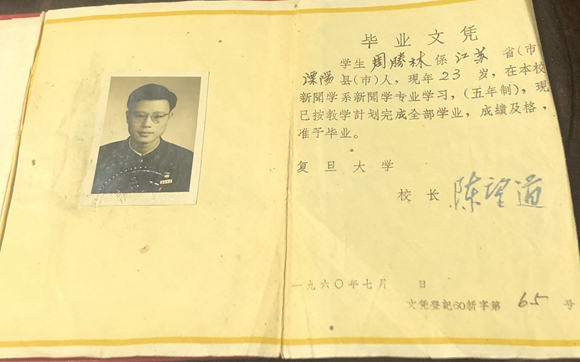 毕业文凭
学生周勝林係江苏省(市)
溧陽县(市)人，現年23岁，在本校
新聞学系新聞学专业学习，(五年制)，現
已按教学計划完成全部学业，成績及格，
准予毕业。
复旦大学
校长 陈望道
一九六〇年七月 日
文凭登記60新字第65号